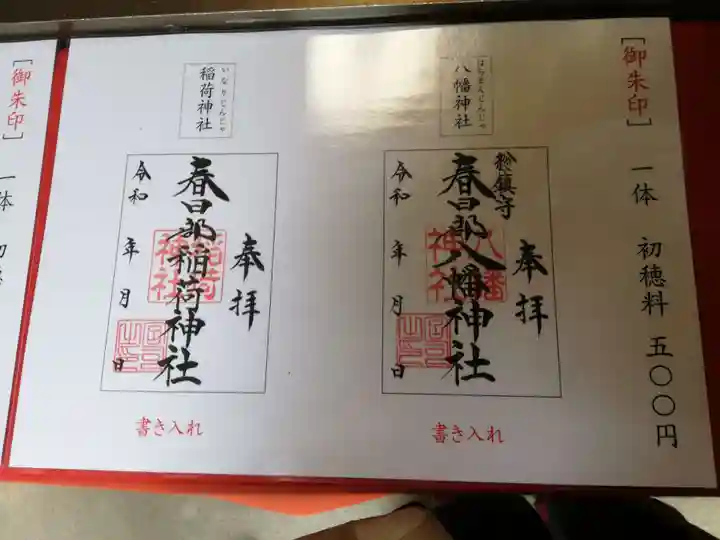 ［御朱印］ 一体 初穂料 五〇〇円
はちまんじんじゃ
八幡神社
奉拝
総鎮守
春日部八幡神社
八幡
神社
令和 年 月 日
書き入れ
いなりじんじゃ
稲荷神社
奉拝
春日部稲荷神社
稲荷
神社
令和 年 月 日
書き入れ
［御朱印］ 一体 初